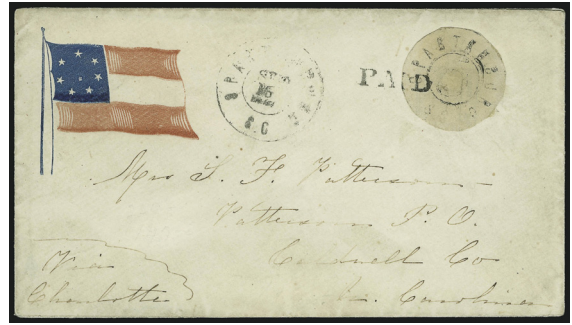 SPARTANBURG
SEP
15
S.C
PAID
SPARTANBURG
S.C
Mrs S. F. Patterson
Patterson P. O.
Caldwell Co
N. Carolina
Via
Charlotte